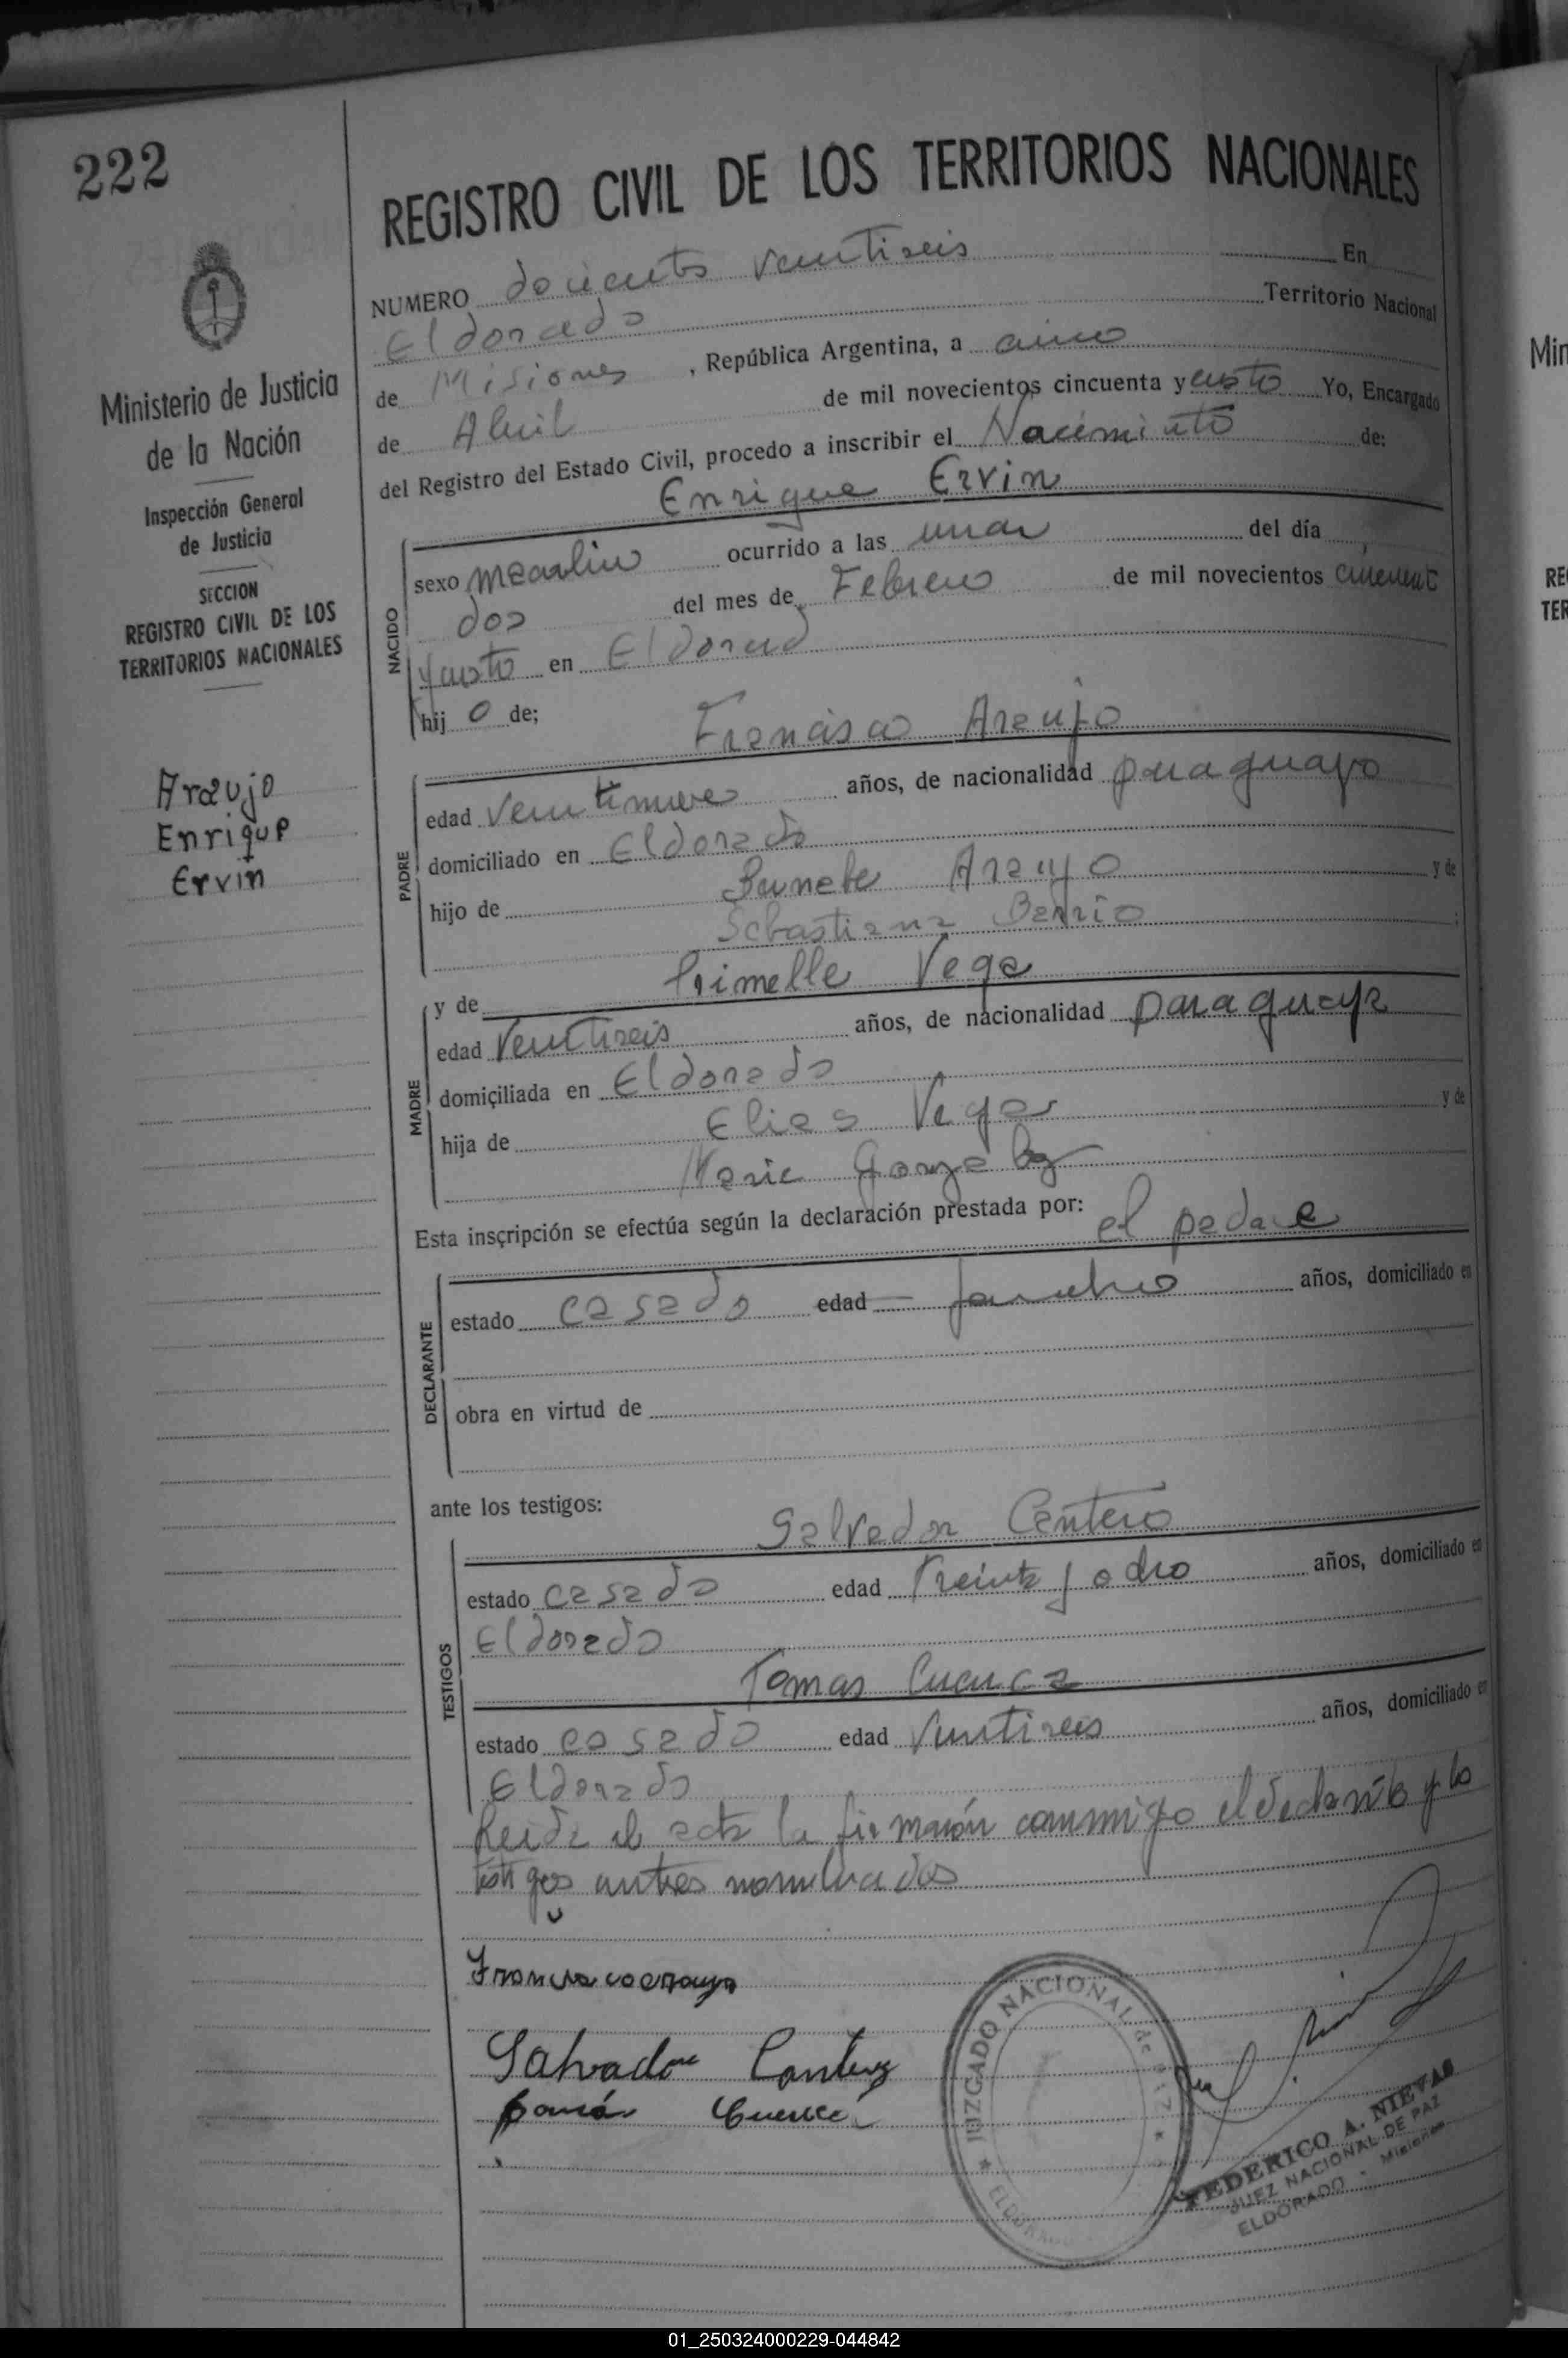 222
REGISTRO CIVIL DE LOS TERRITORIOS NACIONALES
NUMERO docients ventiseis En
Eldorado Territorio Nacional
de Misiones , República Argentina, a cinco
de Abril de mil novecientos cincuenta y custo Yo, Encargado
del Registro del Estado Civil, procedo a inscribir el Nacimiento de:
Enrique Ervin
Ministerio de Justicia
de la Nación
Inspección General
de Justicia
SECCION
REGISTRO CIVIL DE LOS
TERRITORIOS NACIONALES
Araujo
Enrique
Ervin
NACIDO
sexo ocurrido a las del día
dos del mes de Febrero de mil novecientos
en Eldorad
hij o de;
Francisco Araujo
PADRE
edad años, de nacionalidad paraguayo
domiciliado en Eldorado
hijo de Araujo y de
Sebastiana Berrio
y de Vega
MADRE
edad Ventiseis años, de nacionalidad paraguaya
domiciliada en Eldorado
hija de Elias Vega y de
Maria Gonzalez
Esta inscripción se efectúa según la declaración prestada por: el padre
DECLARANTE
estado casado edad años, domiciliado en
obra en virtud de
ante los testigos:
Salvador Centero
TESTIGOS
estado casado edad Treinta y ocho años, domiciliado en
Eldorado
Tomas Cuenca
estado casado edad Ventiseis años, domiciliado en
Eldorado
Leida el acta la firmarón conmmigo el declarante y lo
testigos antes nombrados
Salvador
JUZGADO NACIONAL de PAZ
ELDORADO
FEDERICO A. NIEVAS
JUEZ NACIONAL DE PAZ
ELDORADO - Misiones
Min
RE
TER
01_250324000229-044842